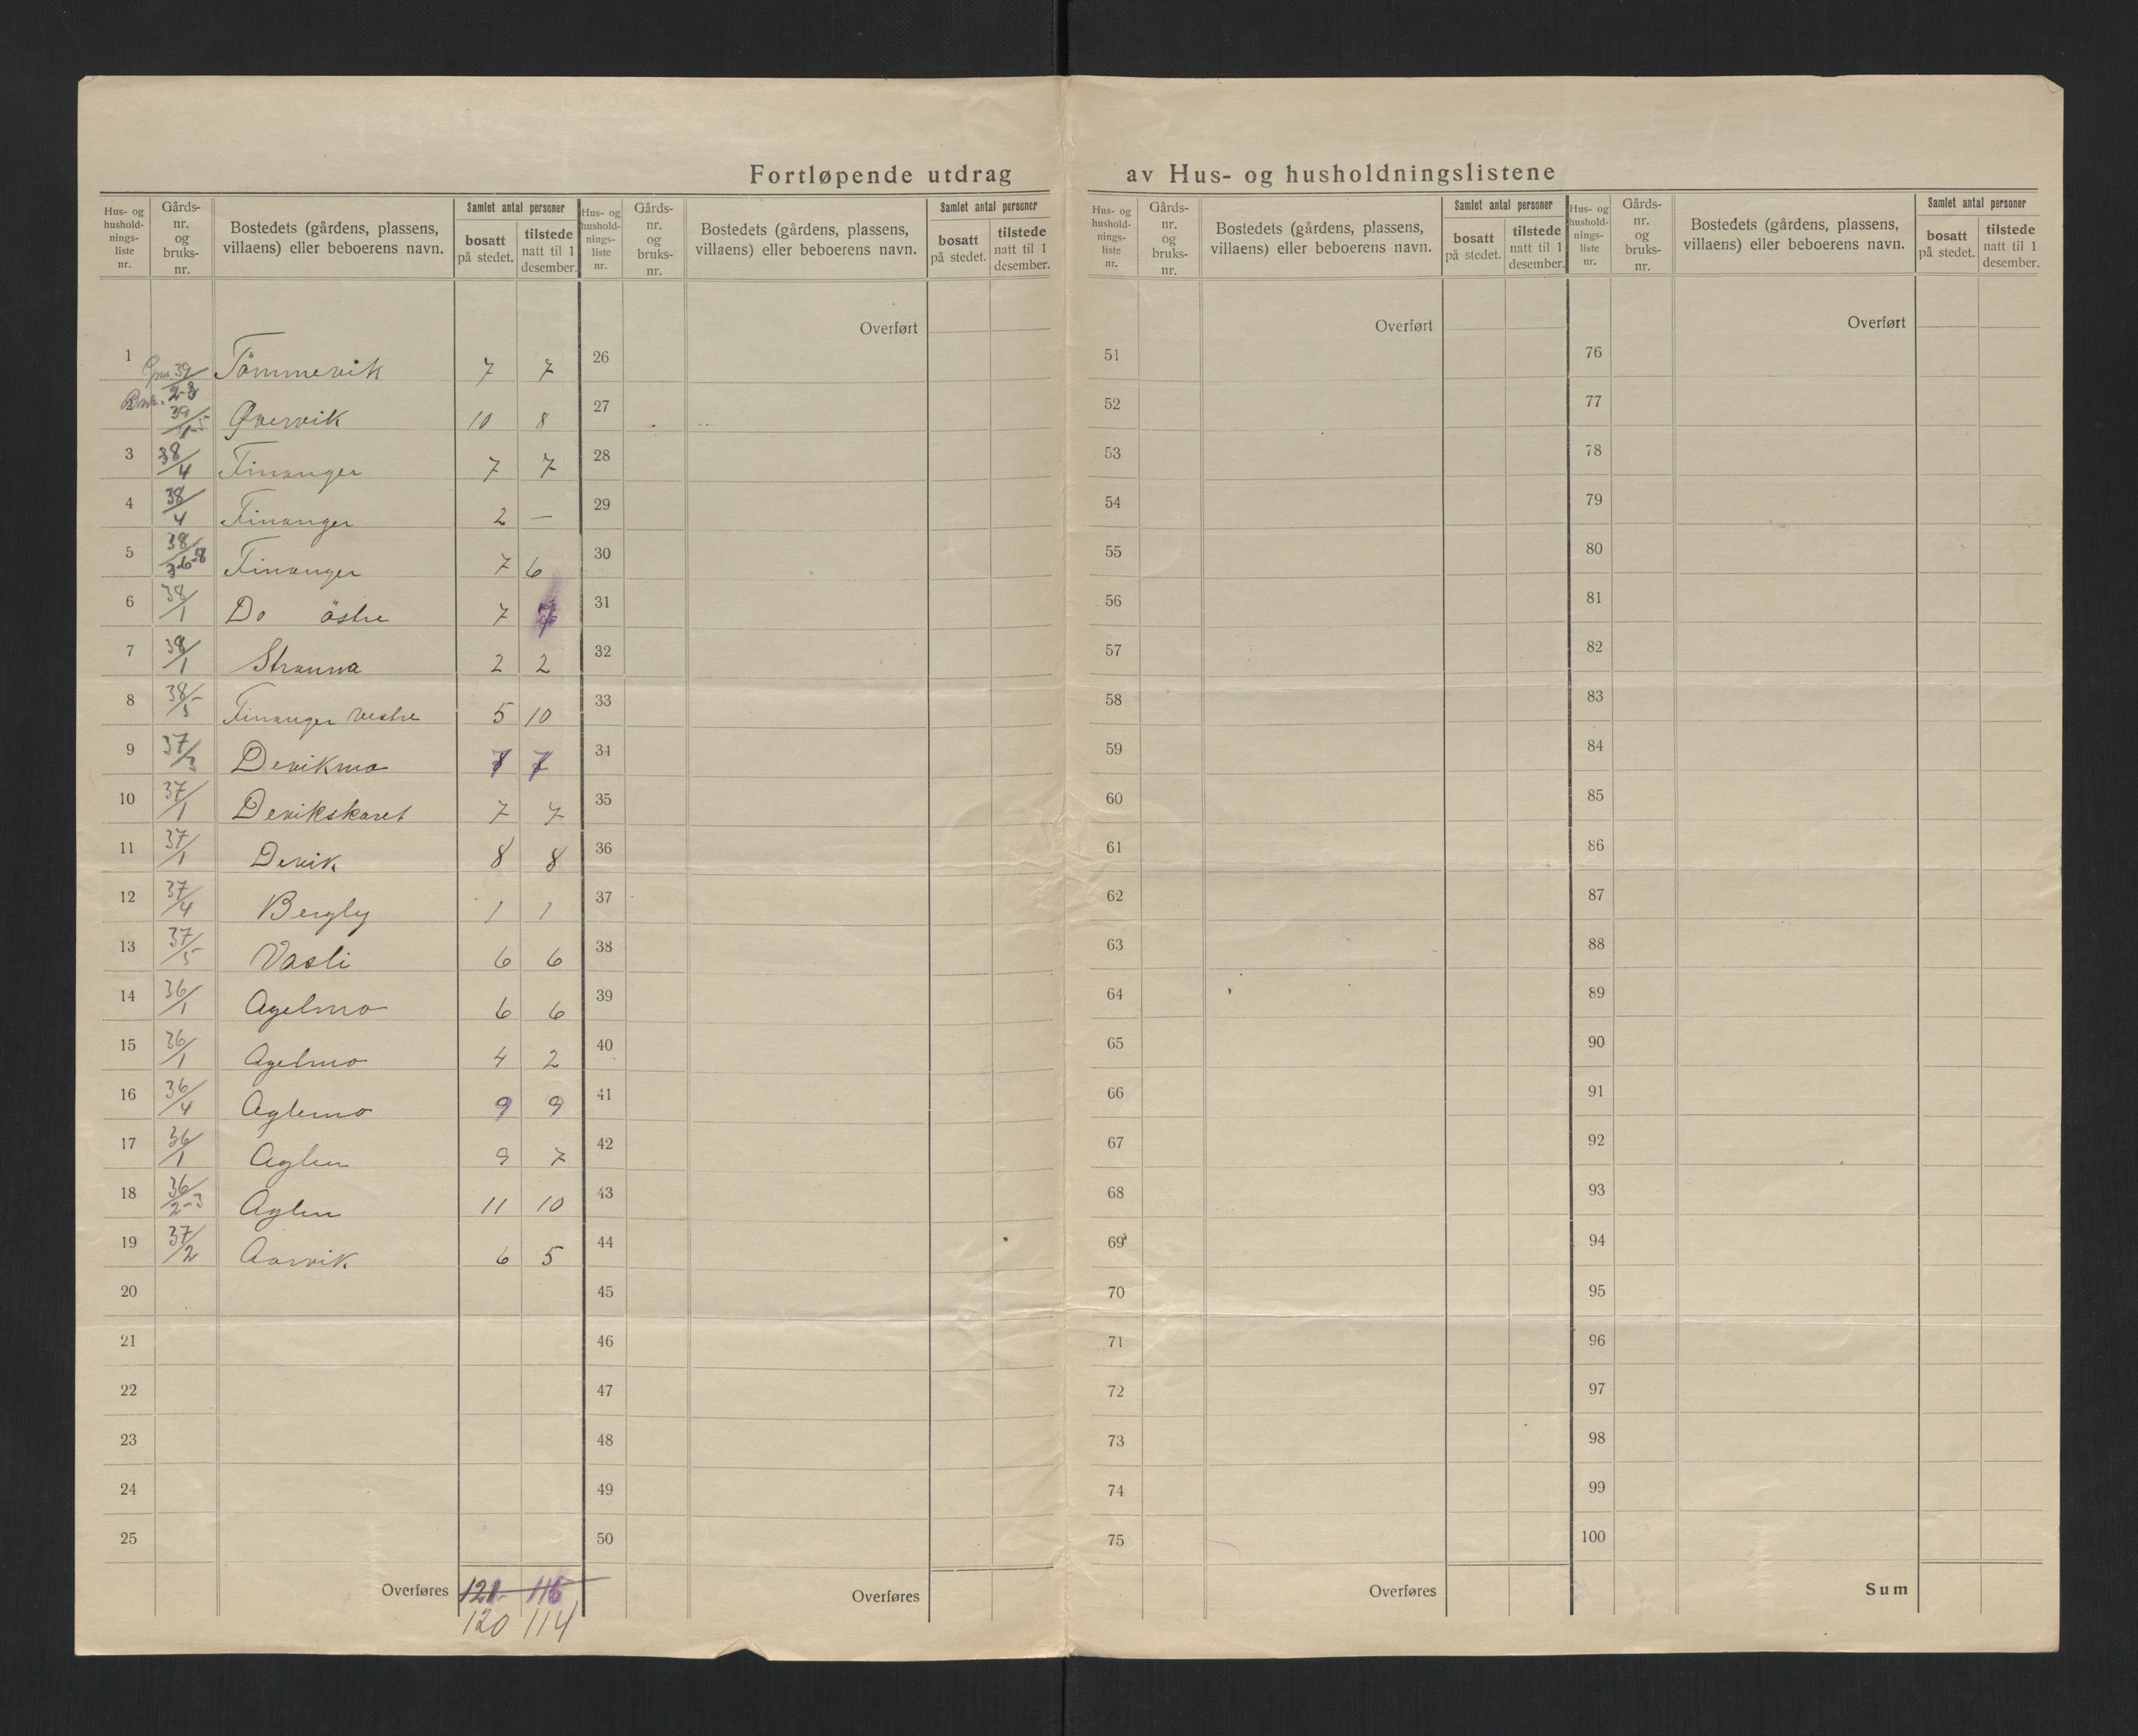 Fortløpende utdrag av Hus- og husholdningslistene
Hus- og hushold- nings- liste nr. | Gårds- nr. og bruks- nr. | Bostedets (gårdens, plassens, villaens) eller beboerens navn. | Samlet antal personer | bosatt på stedet. | tilstede natt til 1 desember.
1 Gnr. 39/ Bnr. 2-3 Tømmervik 7 7
39/1-5 Øvervik 10 8
3 38/4 Finanger 7 7
4 38/4 Finanger 2 —
5 38/3-6-8 Finanger 7 6
6 38/1 Do östre 7 7
7 38/1 Stranna 2 2
8 38/5 Finanger vestre 5 10
9 37/3 Devikmo 7 7
10 37/1 Devikskaret 7 7
11 37/1 Devik 8 8
12 37/4 Bergly 1 1
13 37/5 Vasli 6 6
14 36/1 Agelmo 6 6
15 36/1 Agelmo 4 2
16 36/4 Aglemo 9 9
17 36/1 Aglen 9 7
18 36/2-3 Aglen 11 10
19 37/2 Aarvik 6 5
20
21
22
23
24
25
Overføres 121 115
120 114
Hus- og hushold- nings- liste nr. | Gårds- nr. og bruks- nr. | Bostedets (gårdens, plassens, villaens) eller beboerens navn. | Samlet antal personer | bosatt på stedet. | tilstede natt til 1 desember.
Overført
26
27
28
29
30
31
32
33
34
35
36
37
38
39
40
41
42
43
44
45
46
47
48
49
50
Overføres
Hus- og hushold- nings- liste nr. | Gårds- nr. og bruks- nr. | Bostedets (gårdens, plassens, villaens) eller beboerens navn. | Samlet antal personer | bosatt på stedet. | tilstede natt til 1 desember.
Overført
51
52
53
54
55
56
57
58
59
60
61
62
63
64
65
66
67
68
69
70
71
72
73
74
75
Overføres
Hus- og hushold- nings- liste nr. | Gårds- nr. og bruks- nr. | Bostedets (gårdens, plassens, villaens) eller beboerens navn. | Samlet antal personer | bosatt på stedet. | tilstede natt til 1 desember.
Overført
76
77
78
79
80
81
82
83
84
85
86
87
88
89
90
91
92
93
94
95
96
97
98
99
100
Sum